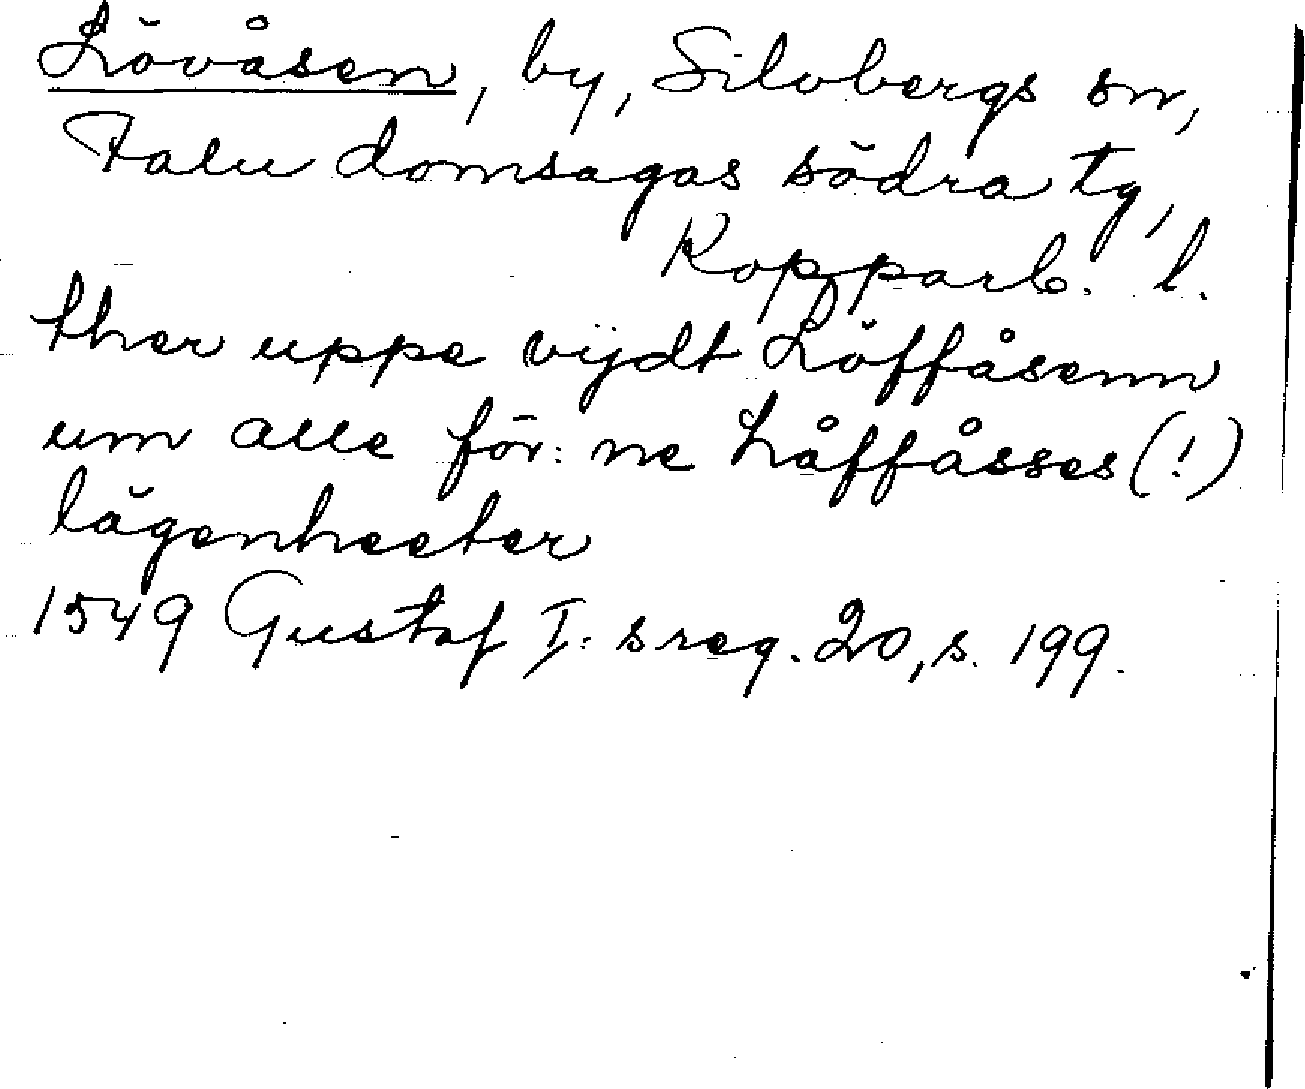 Lövåsen, by, Silvbergs sn,
Falu domsagas södra tg,
Kopparb. l.
ther uppe vijdt Löffåsenn
um alle för:ne Låffåsses (!)
lägenheeter
1549 Gustaf I:s reg. 20, s. 199.